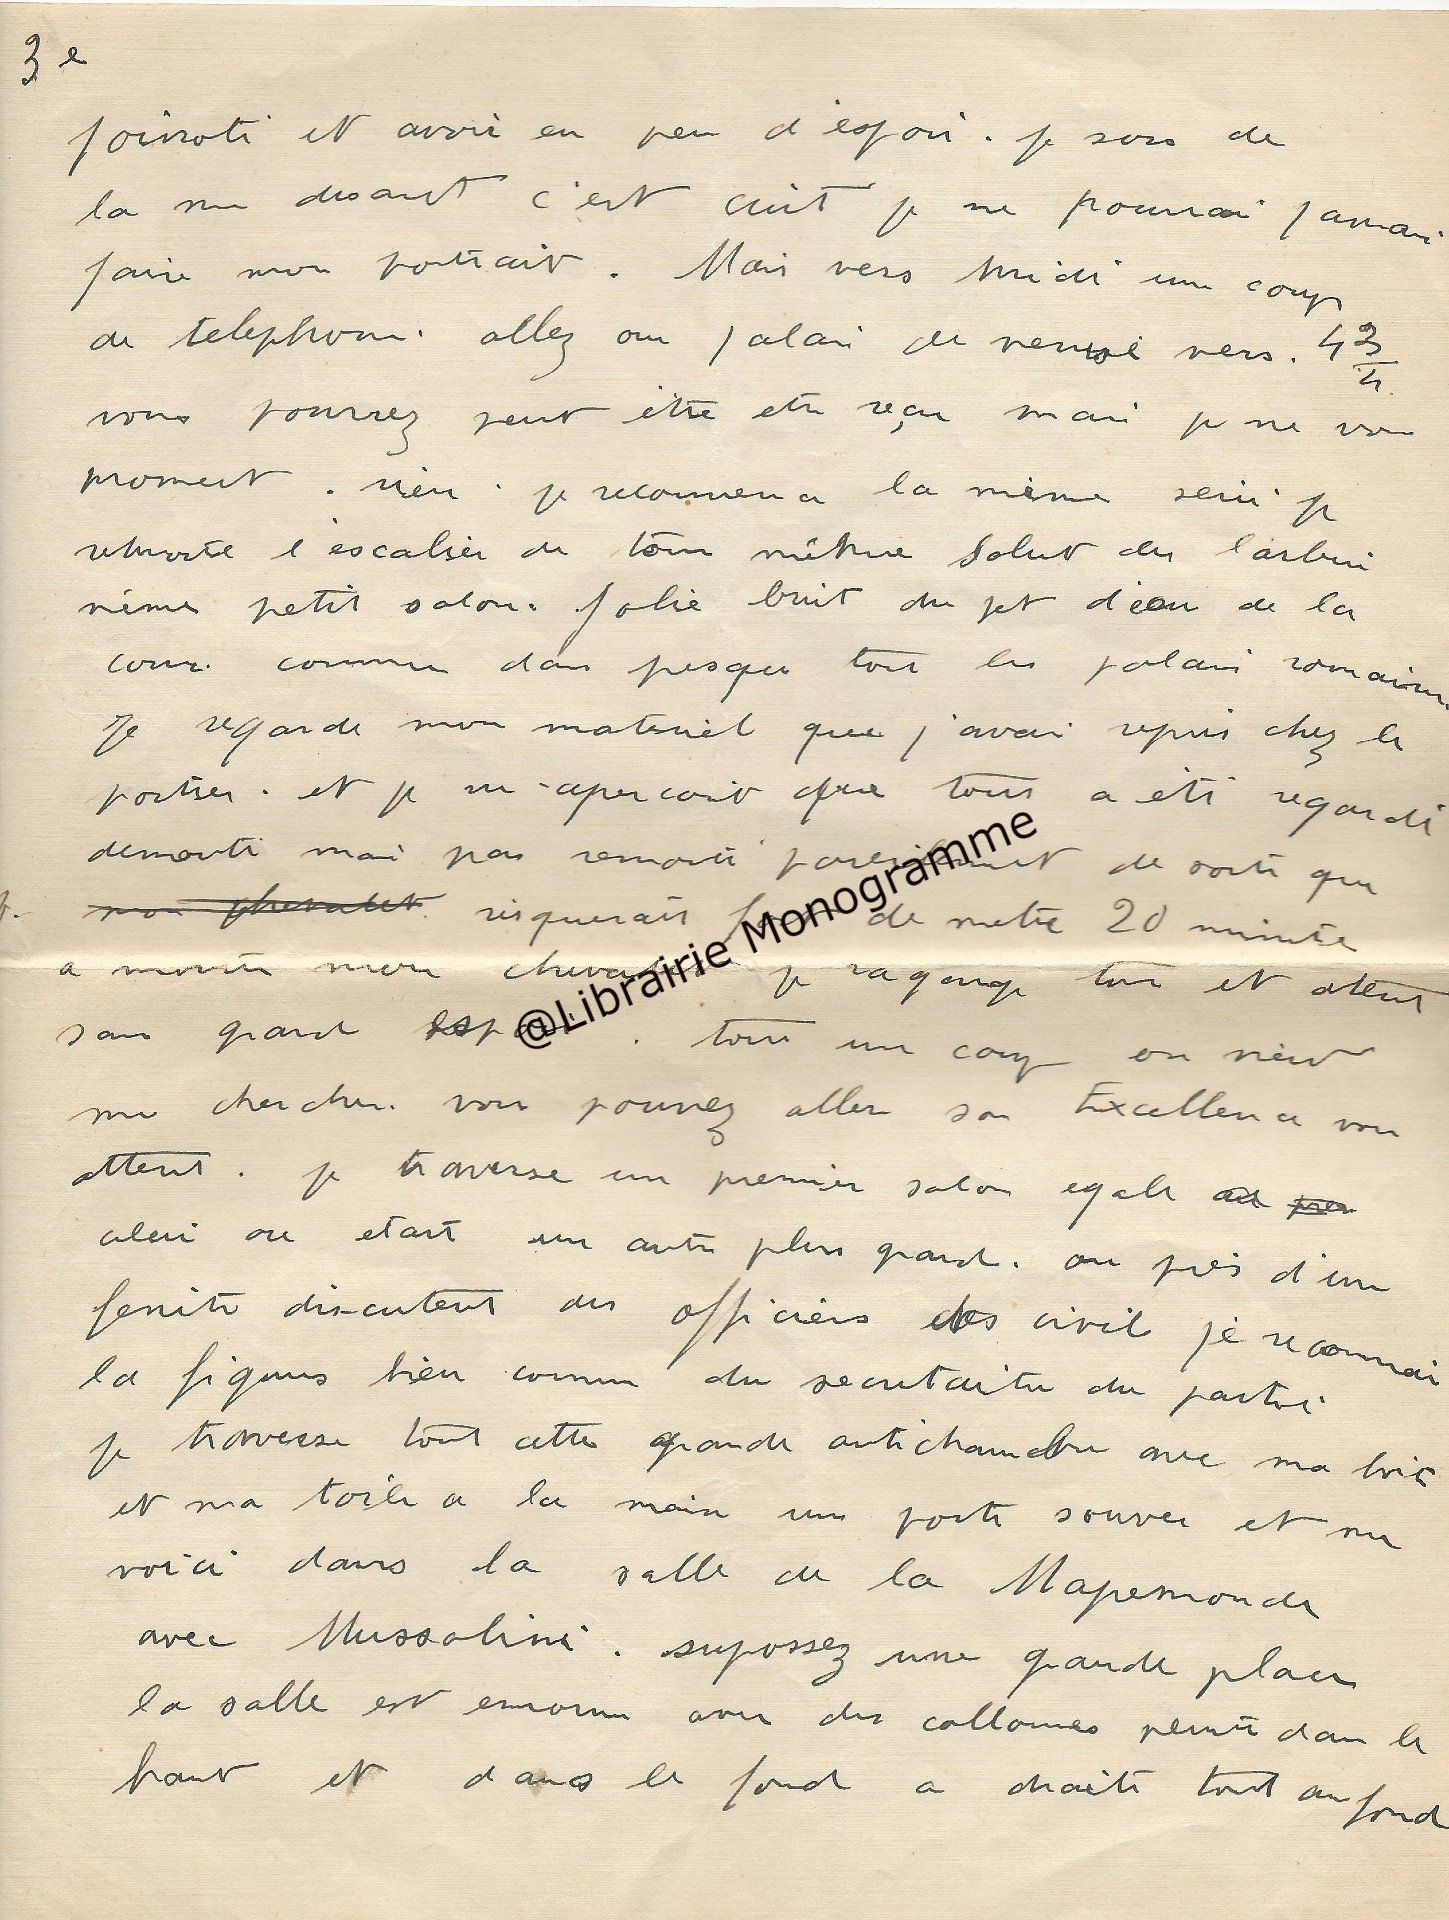 3e
et avoir eu peu d'espoir. je sors de
la me disant c'est cuit je ne pourrai jamais
faire mon portrait. Mais vers midi un coup
de telephone. allez au palais de venise vers. 4 3/4
vous pourrez peut être etre reçu mais je ne vous
promet. rien. je recommence la même serie je
remonte l'escalier de tour même salut des larbins
même petit salon. Jolie bruit du jet d'eau de la
cour. comme dans presque tous les palais romains.
Je regarde mon materiel que j'avais repris chez le
portier. et je m'aperçoit que tout a été regardé
demonté mais pas remonté pareillement de sorte que
mon chevalet. risquerait de metre 20 minute
a monter mon chevalet je range tout et atent
sans grand espoir. tout un coup on vient
me chercher. vous pouvez aller son Excellence vous
attent. je traverse un premier salon egale au pre
celui ou etait un autre plus grand. ou près d'une
fenêtre discutent des officiers des civils je reconnais
la figure bien connue du secretaire du parti
je traverse tout cette grande antichambre avec ma boite
et ma toile a la main une porte s'ouvre et me
voici dans la salle de la Mapemonde
avec Mussolini. supossez une grande place
la salle est enorme avec des collonnes peinte dans le
haut et dans le fond a droite tout au fond
@Librairie Monogramme